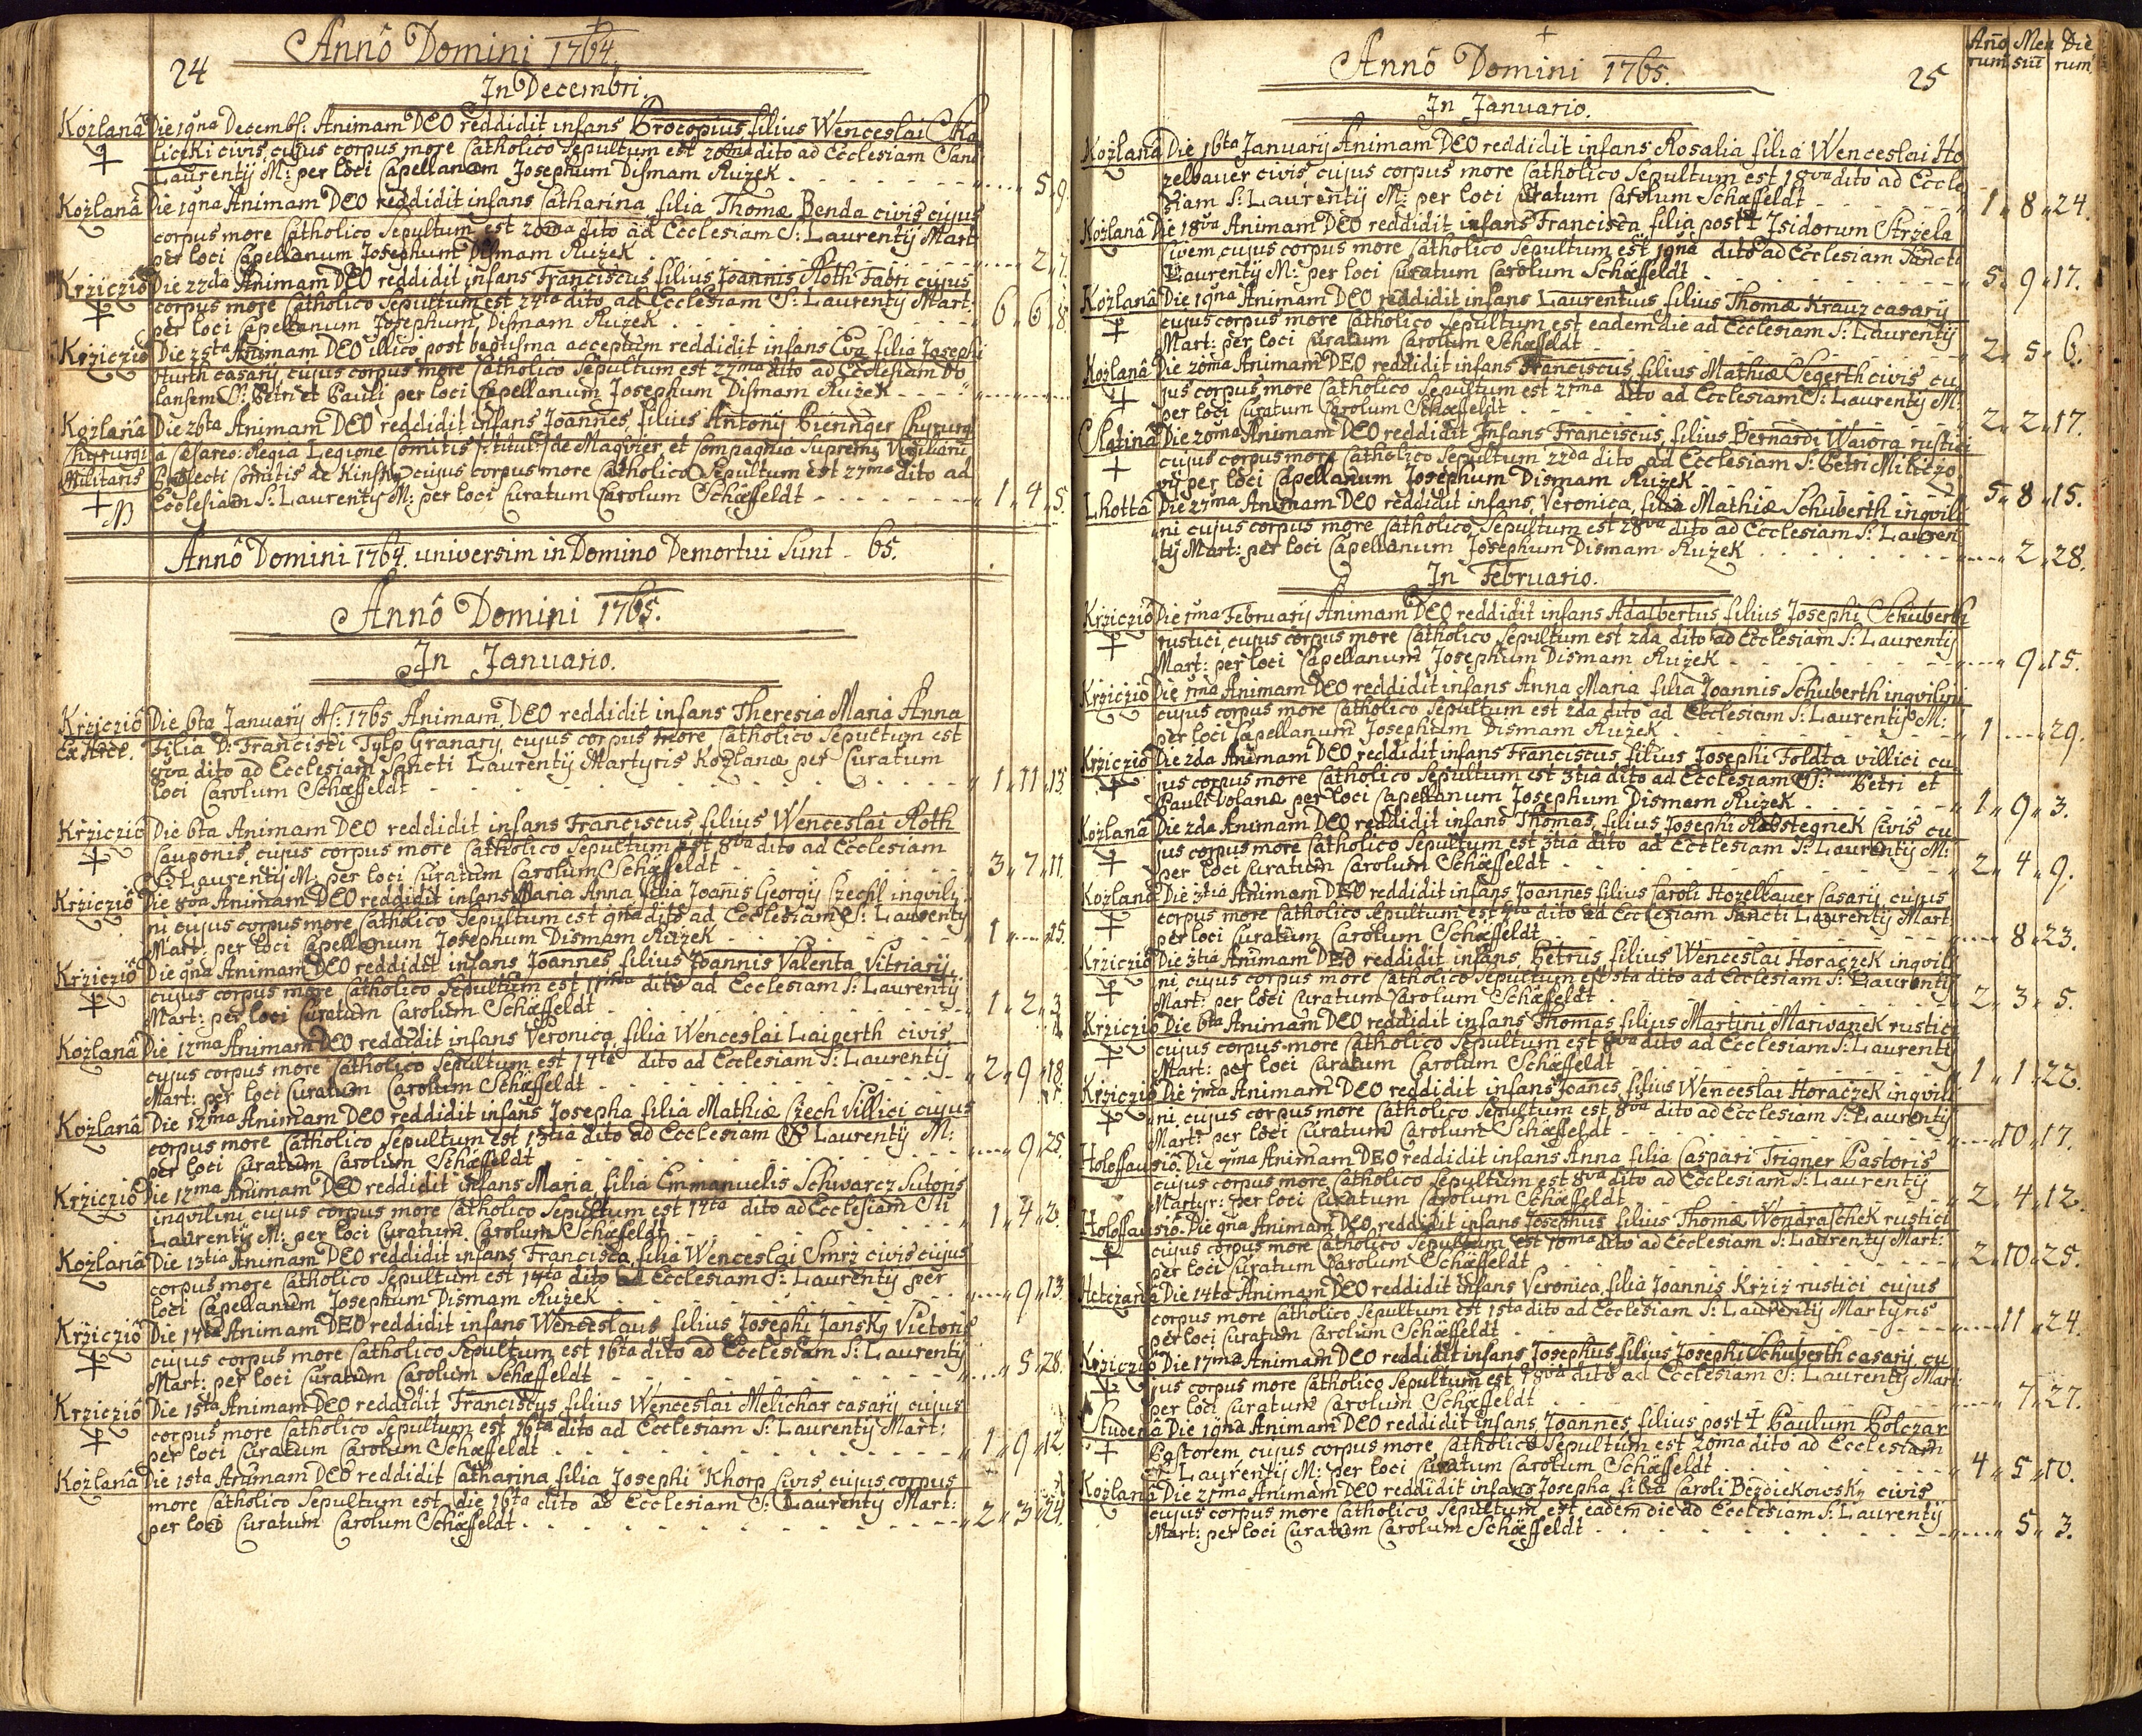 24
Annô Domini 1764.
In Decembri.
Kozlanâ Die 19na Decembr: Animam DEO reddidit infans Procopius, filius Wenceslai Ska
liczki civis, cujus corpus more Catholico Sepultum est 20ma dito ad Ecclesiam Sanc
Laurentÿ M: per loci Capellanum Josephum Dismam Ruzek 5 9
Kozlanâ Die 19na Animam DEO reddidit infans Catharina filia Thomæ Benda civis cujus
corpus more Catholico Sepultum est 20ma dito ad Ecclesiam S: Laurentÿ Mart
per loci Capellanum Josephum Dismam Ruzek 2 7
Krzicziô Die 22da Animam DEO reddidit infans Franciscus filius Joannis Roth Fabri cujus
corpus more Catholico Sepultum est 24ta dito ad Ecclesiam S: Laurentÿ Mart:
per loci Capellanum Josephum Dismam Ruzek 6 6 8
Krzicziô Die 25ta Animam DEO illico post baptisma acceptum reddidit infans Eva filia Josephi
Hurth casarÿ cujus corpus more Catholico Sepultum est 27ma dito ad Ecclesiam Vo
lansem SS: Petri et Pauli per loci Capellanum Josephum Dismam Ruzek
Kozlanâ Die 26ta Animam DEO reddidit infans Joannes, filius Antonÿ Bieninger Chyrurgi
Chyrurgi a Cæsareo-Regia Legione Comitis titul: de Maqvier, et Compagnia Supremi Vigiliarū
Militaris Præfecti Comitis de Kinsky cujus corpus more Catholico Sepultum est 27ma dito ad
Ecclesiam S: Laurentÿ M: per loci Curatum Carolum Schæffeldt 1 4 5
Annô Domini 1764. universim in Domino Demortui Sunt 65.
Annô Domini 1765.
In Januario.
Krzicziô Die 6ta Januarÿ A: 1765 Animam DEO reddidit infans Theresia Maria Anna
Ex Arce. Filia D: Francisci Tylp Granarÿ, cujus corpus more Catholico Sepultum est
8va dito ad Ecclesiam Sancti Laurentÿ Martyris Kozlanæ per Curatum
loci Carolum Schæffeldt 1 11 13
Krziczio Die 6ta Animam DEO reddidit infans Franciscus filius Wenceslai Roth
Cauponis, cujus corpus more Catholico Sepultum est 8va dito ad Ecclesiam
S: Laurentÿ M: per loci Curatum Carolum Schæffeldt 3 7 11
Krziczio Die 8va Animam DEO reddidit infans Maria Anna filia Joañis Georgÿ Czechl inqvili
ni cujus corpus more Catholico Sepultum est 9na dito ad Ecclesiam S: Laurentÿ
Mart: per loci Capellanum Josephum Dismam Ruzek 1 25
Krziczio Die 9na Animam DEO reddidit infans Joannes filius Joannis Valenta Vitriarÿ
cujus corpus more Catholico Sepultum est 11ma dito ad Ecclesiam S: Laurentÿ
Mart: per loci Curatum Carolum Schæffeldt 1 2 3
Kozlanâ Die 12ma Animam DEO reddidit infans Veronica filia Wenceslai Laiperth civis
cujus corpus more Catholico Sepultum est 14ta dito ad Ecclesiam S: Laurentÿ
Mart: per loci Curatum Carolum Schæffeldt 2 9 18
Kozlanâ Die 12ma Animam DEO reddidit infans Josepha filia Mathiæ Czech Villici cujus
corpus more Catholico Sepultum est 13tia dito ad Ecclesiam S: Laurentÿ M:
per loci Curatum Carolum Schæffeldt 9 25
Krziczio Die 12ma Animam DEO reddidit infans Maria filia Emmanuelis Schwarcz Sutoris
inqvilini cujus corpus more Catholico Sepultum est 14ta dito ad Ecclesiam Sti
Laurentÿ M: per loci Curatum Carolum Schæffeldt 1 4 3
Kozlanâ Die 13tia Animam DEO reddidit infans Francisca filia Wenceslai Smrz civis cujus
corpus more Catholico Sepultum est 14ta dito ad Ecclesiam S: Laurentÿ per
loci Capellanum Josephum Dismam Ruzek 9 13
Krziczio Die 14ta Animam DEO reddidit infans Wenceslaus filius Josephi Jansky Vietoris
cujus corpus more Catholico Sepultum est 16ta dito ad Ecclesiam S: Laurentÿ
Mart: per loci Curatum Carolum Schæffeldt 5 28
Krziczio Die 15ta Animam DEO reddidit Franciscus filius Wenceslai Melichar casarÿ cujus
corpus more Catholico Sepultum est 16ta dito ad Ecclesiam S: Laurentÿ Mart:
per loci Curatum Carolum Schæffeldt 1 9 12
Kozlanâ Die 15ta Animam DEO reddidit Catharina filia Josephi Khorp Civis cujus corpus
more Catholico Sepultum est die 16ta dito ad Ecclesiam S: Laurentÿ Mart:
per loci Curatum Carolum Schæffeldt 2 3 24
Annô Domini 1765. 25
Año rum Men siū Die rum
In Januario.
Kozlanâ Die 16ta Januarÿ Animam DEO reddidit infans Rosalia filia Wenceslai Ho
zelbauer civis cujus corpus more Catholico Sepultum est 18va dito ad Eccle
siam S: Laurentÿ M: per loci Curatum Carolum Schæffeldt 1 8 24.
Kozlanâ Die 18va Animam DEO reddidit infans Francisca filia post † Isidorum Strzela
Civem, cujus corpus more Catholico Sepultum est 19na dito ad Ecclesiam Sancti
Laurentÿ M: per loci Curatum Carolum Schæffeldt 5 9 17.
Kozlanâ Die 19na Animam DEO reddidit infans Laurentius filius Thomæ Krauz casarÿ
cujus corpus more Catholico Sepultum est eadem die ad Ecclesiam S: Laurentÿ
Mart: per loci Curatum Carolum Schæffeldt 2 5 6.
Kozlanâ Die 20ma Animam DEO reddidit infans Franciscus filius Mathiæ Segerth civis cu
jus corpus more Catholico Sepultum est 21ma dito ad Ecclesiam S: Laurentÿ M:
per loci Curatum Carolum Schæffeldt 2 2 17.
Slatina Die 20ma Animam DEO reddidit Infans Franciscus filius Bernardi Wawora rustici
cujus corpus more Catholico Sepultum 22da dito ad Ecclesiam S: Petri Miliczo
vÿ per loci Capellanum Josephum Dismam Ruzek 5 8 15.
Lhotta Die 27ma Animam DEO reddidit infans Veronica, filia Mathiæ Schuberth inqvili
ni cujus corpus more Catholico Sepultum est 28va dito ad Ecclesiam S: Lauren
tÿ Mart: per loci Capellanum Josephum Dismam Ruzek 2 28.
In Februario.
Krziczio Die 1ma Februarÿ Animam DEO reddidit infans Adalbertus filius Josephi Schuberth
rustici, cujus corpus more Catholico Sepultum est 2da dito ad Ecclesiam S: Laurentÿ
Mart: per loci Capellanum Josephum Dismam Ruzek 9 15.
Krziczio Die 1ma Animam DEO reddidit infans Anna Maria filia Joannis Schuberth inqvilini
cujus corpus more Catholico Sepultum est 2da dito ad Ecclesiam S: Laurentÿ M:
per loci Capellanum Josephum Dismam Ruzek 1 29.
Krziczio Die 2da Animam DEO reddidit infans Franciscus filius Josephi Foldta villici cu
jus corpus more Catholico Sepultum est 3tia dito ad Ecclesiam SS: Petri et
Pauli Volanæ per loci Capellanum Josephum Dismam Ruzek 1 9 3.
Kozlanâ Die 2da Animam DEO reddidit infans Thomas, filius Josephi Robstegnek Civis cu
jus corpus more Catholico Sepultum est 3tia dito ad Ecclesiam S: Laurentÿ M:
per loci Curatum Carolum Schæffeldt 2 4 9.
Kozlanâ Die 3tia Animam DEO reddidit infans Joannes filius Caroli Hozelbauer Casarÿ cujus
corpus more Catholico Sepultum est 4ta dito ad Ecclesiam Sancti Laurentÿ Mart
per loci Curatum Carolum Schæffeldt 8 23.
Krziczio Die 3tia Animam DEO reddidit infans Petrus filius Wenceslai Horaczek inqvili
ni cujus corpus more Catholico Sepultum est 5ta dito ad Ecclesiam S: Laurentÿ
Mart: per loci Curatum Carolum Schæffeldt 2 3 5.
Krziczio Die 6ta Animam DEO reddidit infans Thomas filius Martini Marwanek rustici
cujus corpus more Catholico Sepultum est 8va dito ad Ecclesiam S: Laurentÿ
Mart: per loci Curatum Carolum Schæffeldt 1 1 22.
Krziczio Die 7ma Animam DEO reddidit infans Joañes filius Wenceslai Horaczek inqvili
ni, cujus corpus more Catholico Sepultum est 8va dito ad Ecclesiam S: Laurentÿ
Mart: per loci Curatum Carolum Schæffeldt 10 17.
Holoffausiô. Die 7ma Animam DEO reddidit infans Anna filia Caspari Trigner Pastoris
cujus corpus more Catholico Sepultum est 8va dito ad Ecclesiam S: Laurentÿ
Martyr: per loci Curatum Carolum Schæffeldt 2 4 12.
Holoffausiô. Die 9na Animam DEO reddidit infans Josephus filius Thomæ Wondraschek rustici
cujus corpus more Catholico Sepultum est 10ma dito ad Ecclesiam S: Laurentÿ Mart:
per loci Curatum Carolum Schæffeldt 2 10 25.
Hetczana Die 14ta Animam DEO reddidit infans Veronica, filia Joannis Krziz rustici cujus
corpus more Catholico Sepultum est 15ta dito ad Ecclesiam S: Laurentÿ Martyris
per loci Curatum Carolum Schæffeldt 11 24.
Krziczio Die 17ma Animam DEO reddidit infans Josephus filius Josephi Schuberth casarÿ cu
jus corpus more Catholico Sepultum est 18va dito ad Ecclesiam S: Laurentÿ Mart:
per loci Curatum Carolum Schæffeldt 7 27.
Studena Die 19na Animam DEO reddidit infans Joannes filius post † Paulum Bolczar
Pastorem, cujus corpus more Catholico Sepultum est 20ma dito ad Ecclesiam
S: Laurentÿ M: per loci Curatum Carolum Schæffeldt 4 5 10.
Kozlanâ Die 21ma Animam DEO reddidit infans Josepha filia Caroli Bezdiekowsky civis
cujus corpus more Catholico Sepultum est eadem die ad Ecclesiam S: Laurentÿ
Mart: per loci Curatum Carolum Schæffeldt 5 3.